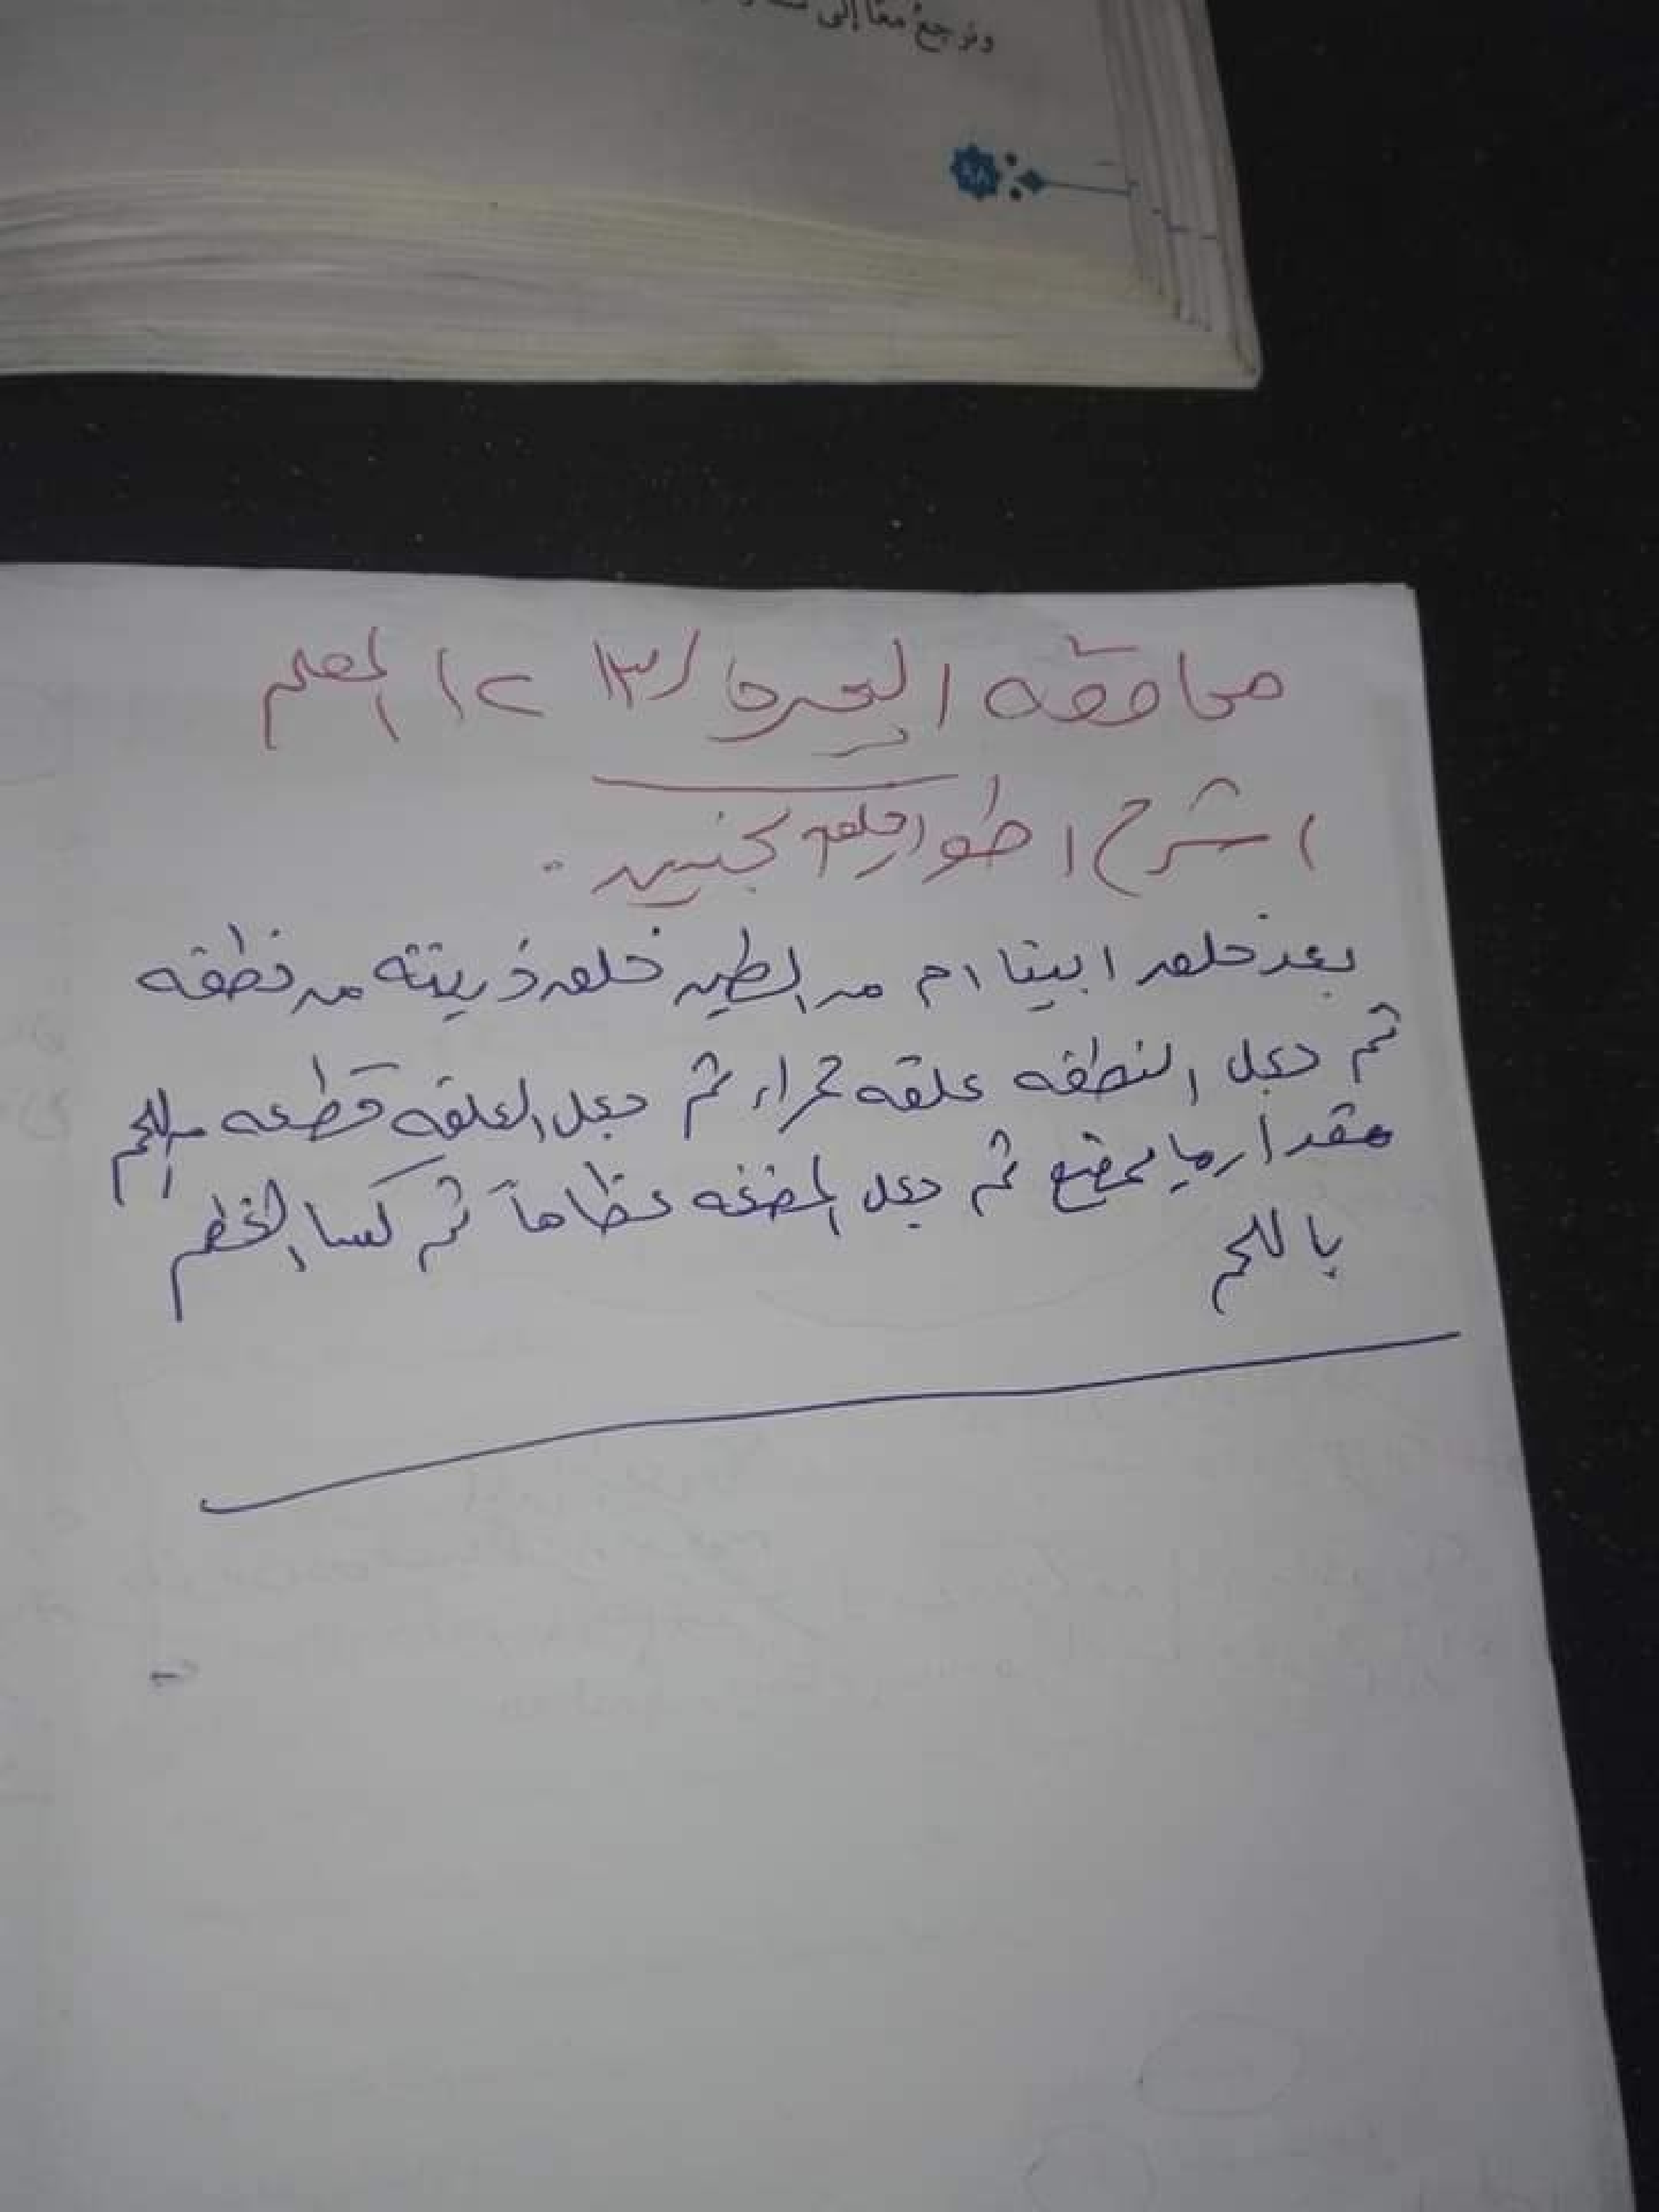 ونرجع معًا إلى
٩٨
محافقه البحيره / ١٣ ١٢ المعلم
اشرح اطوار خلق الجنين .
بعد خلق ابينا ادم من الطين خلق ذريته من نطفه
ثم جعل النطفه علقه حمراء ثم جعل العلقه قطعه من اللحم
مقدار ما يمضغ ثم جعل المضغه عظاماً ثم كسا العظم
باللحم